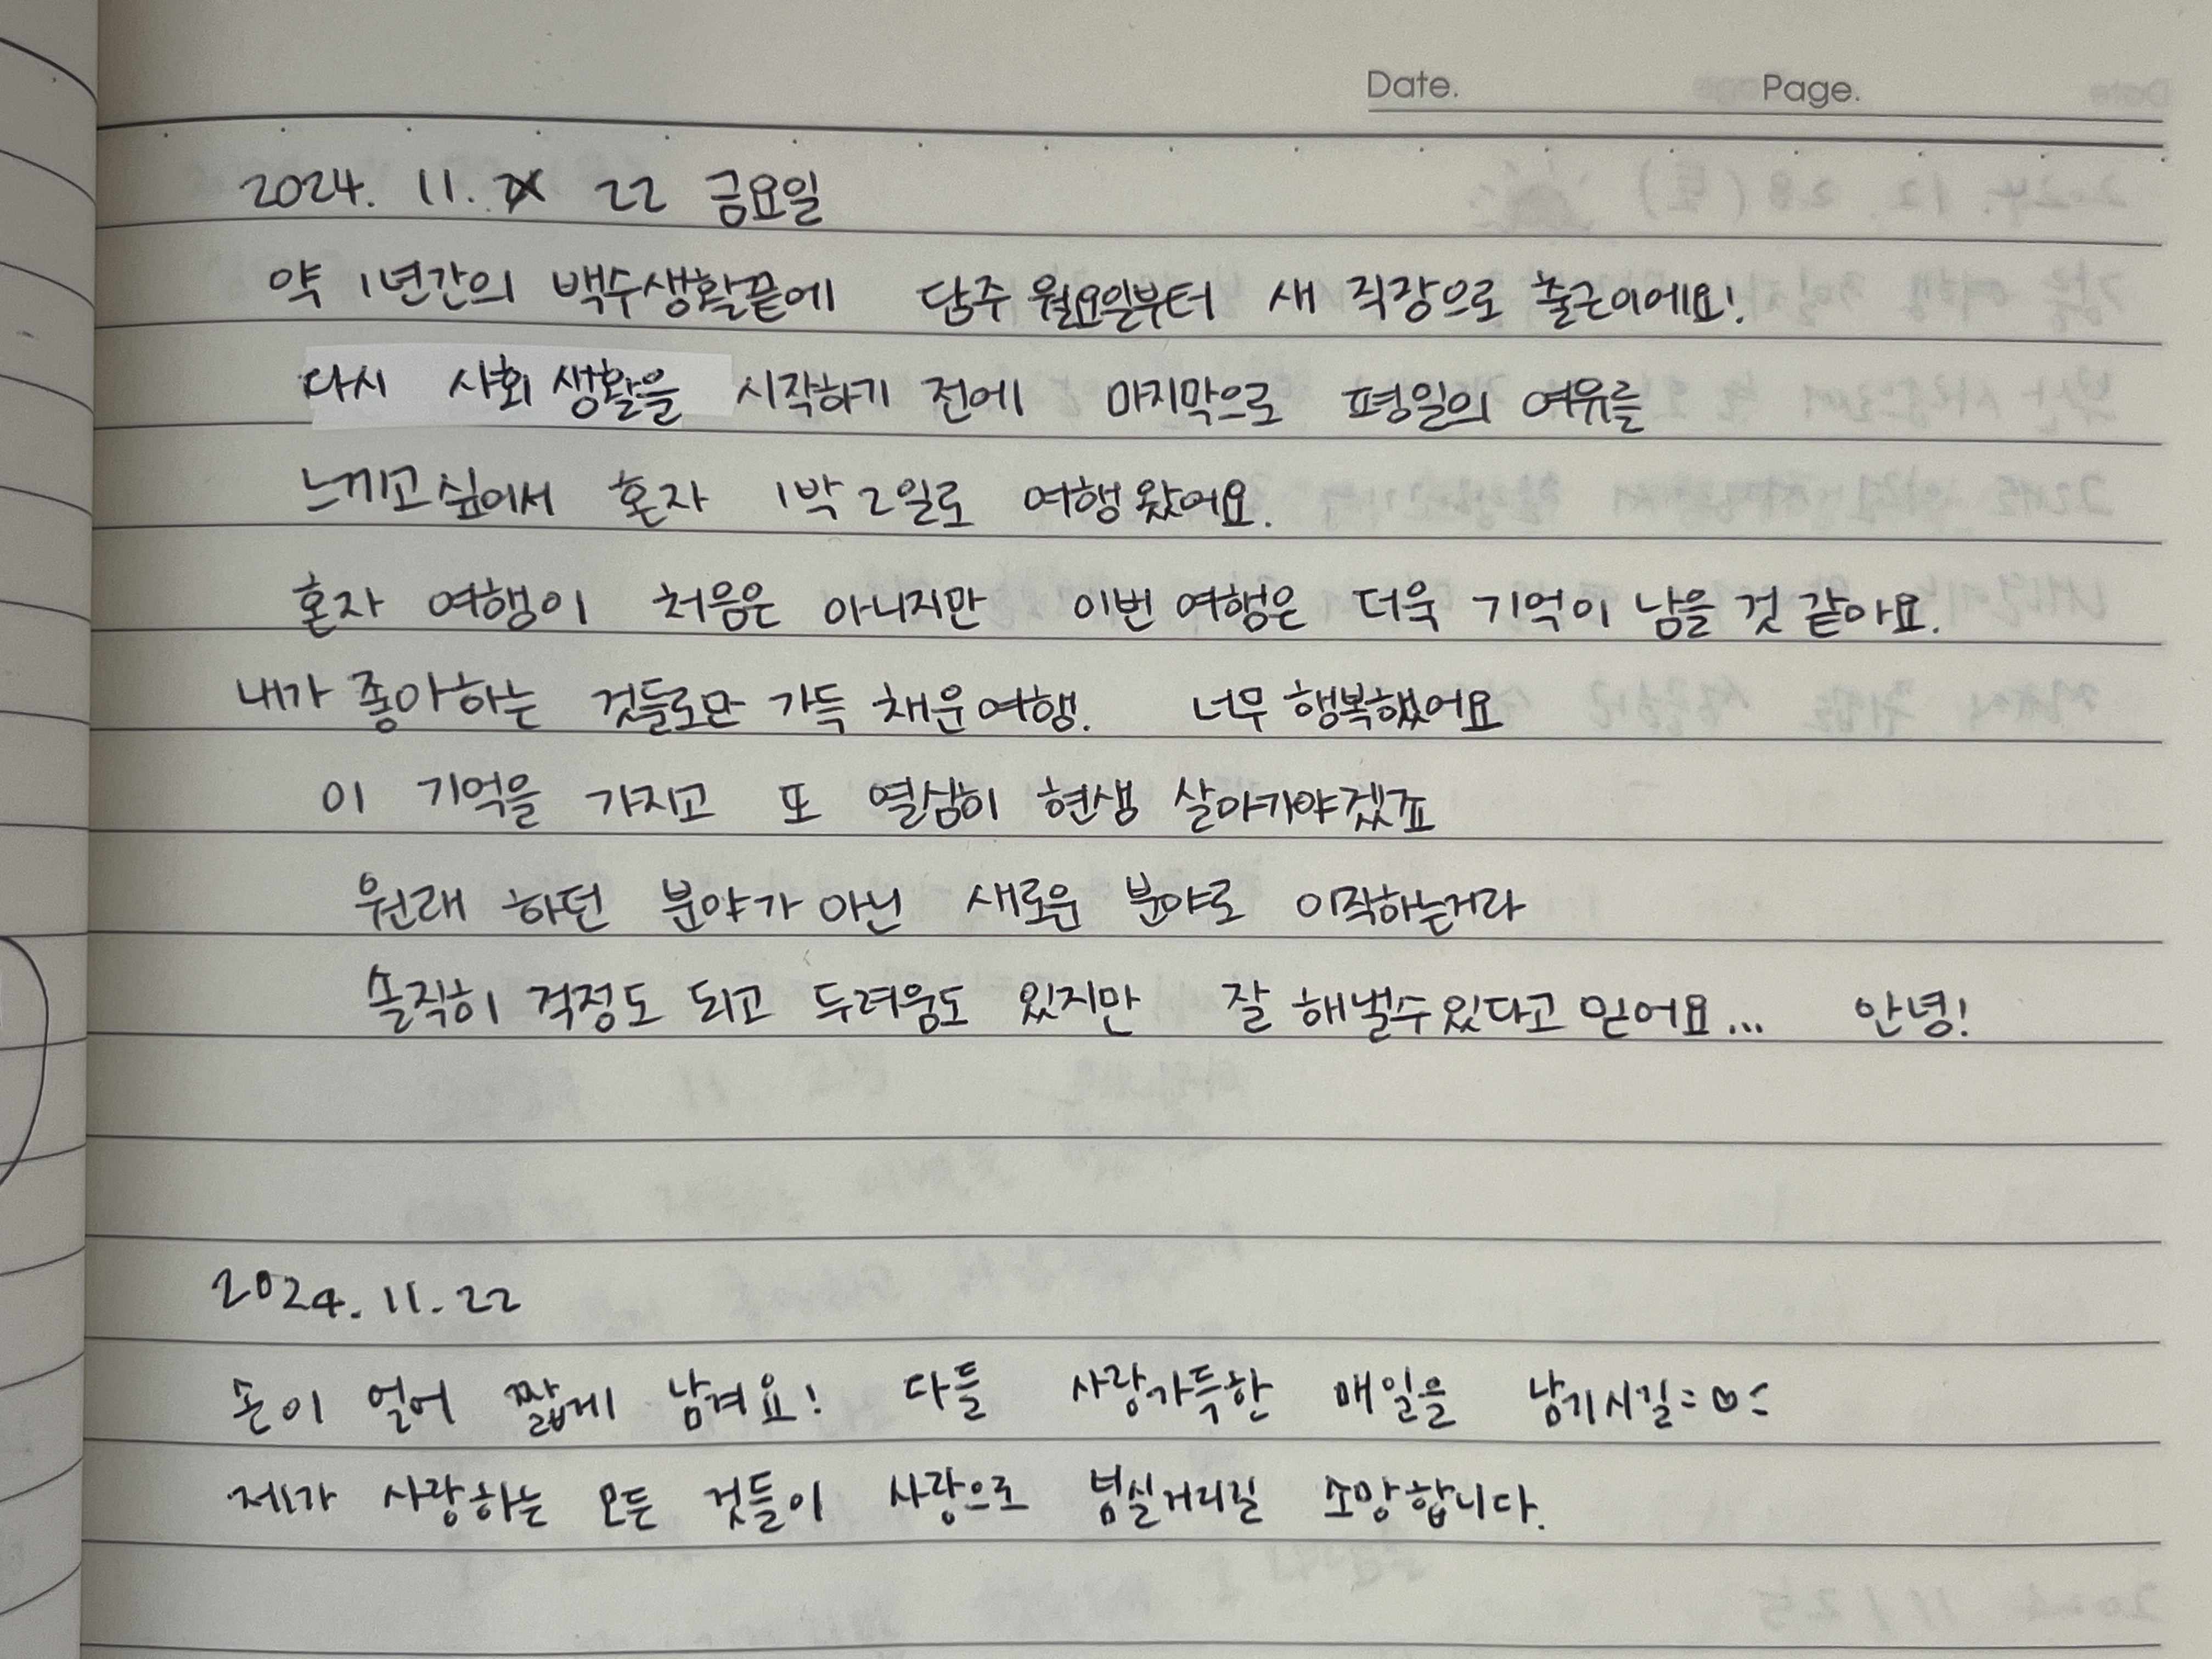 Date. Page.
2024. 11. 22 금요일
약 1년간의 백수생활끝에 담주 월요일부터 새 직장으로 출근이에요!
다시 사회 생활을 시작하기 전에 마지막으로 평일의 여유를
느끼고싶어서 혼자 1박 2일로 여행 왔어요.
혼자 여행이 처음은 아니지만 이번 여행은 더욱 기억이 남을 것 같아요.
내가 좋아하는 것들로만 가득 채운 여행. 너무 행복했어요
이 기억을 가지고 또 열심히 현생 살아가야겠죠
원래 하던 분야가 아닌 새로운 분야로 이직하는거라
솔직히 걱정도 되고 두려움도 있지만 잘 해낼수있다고 믿어요... 안녕!
2024. 11. 22
손이 얼어 짧게 남겨요! 다들 사랑가득한 매일을 남기시길=♡=
제가 사랑하는 모든 것들이 사랑으로 넘실거리길 소망합니다.